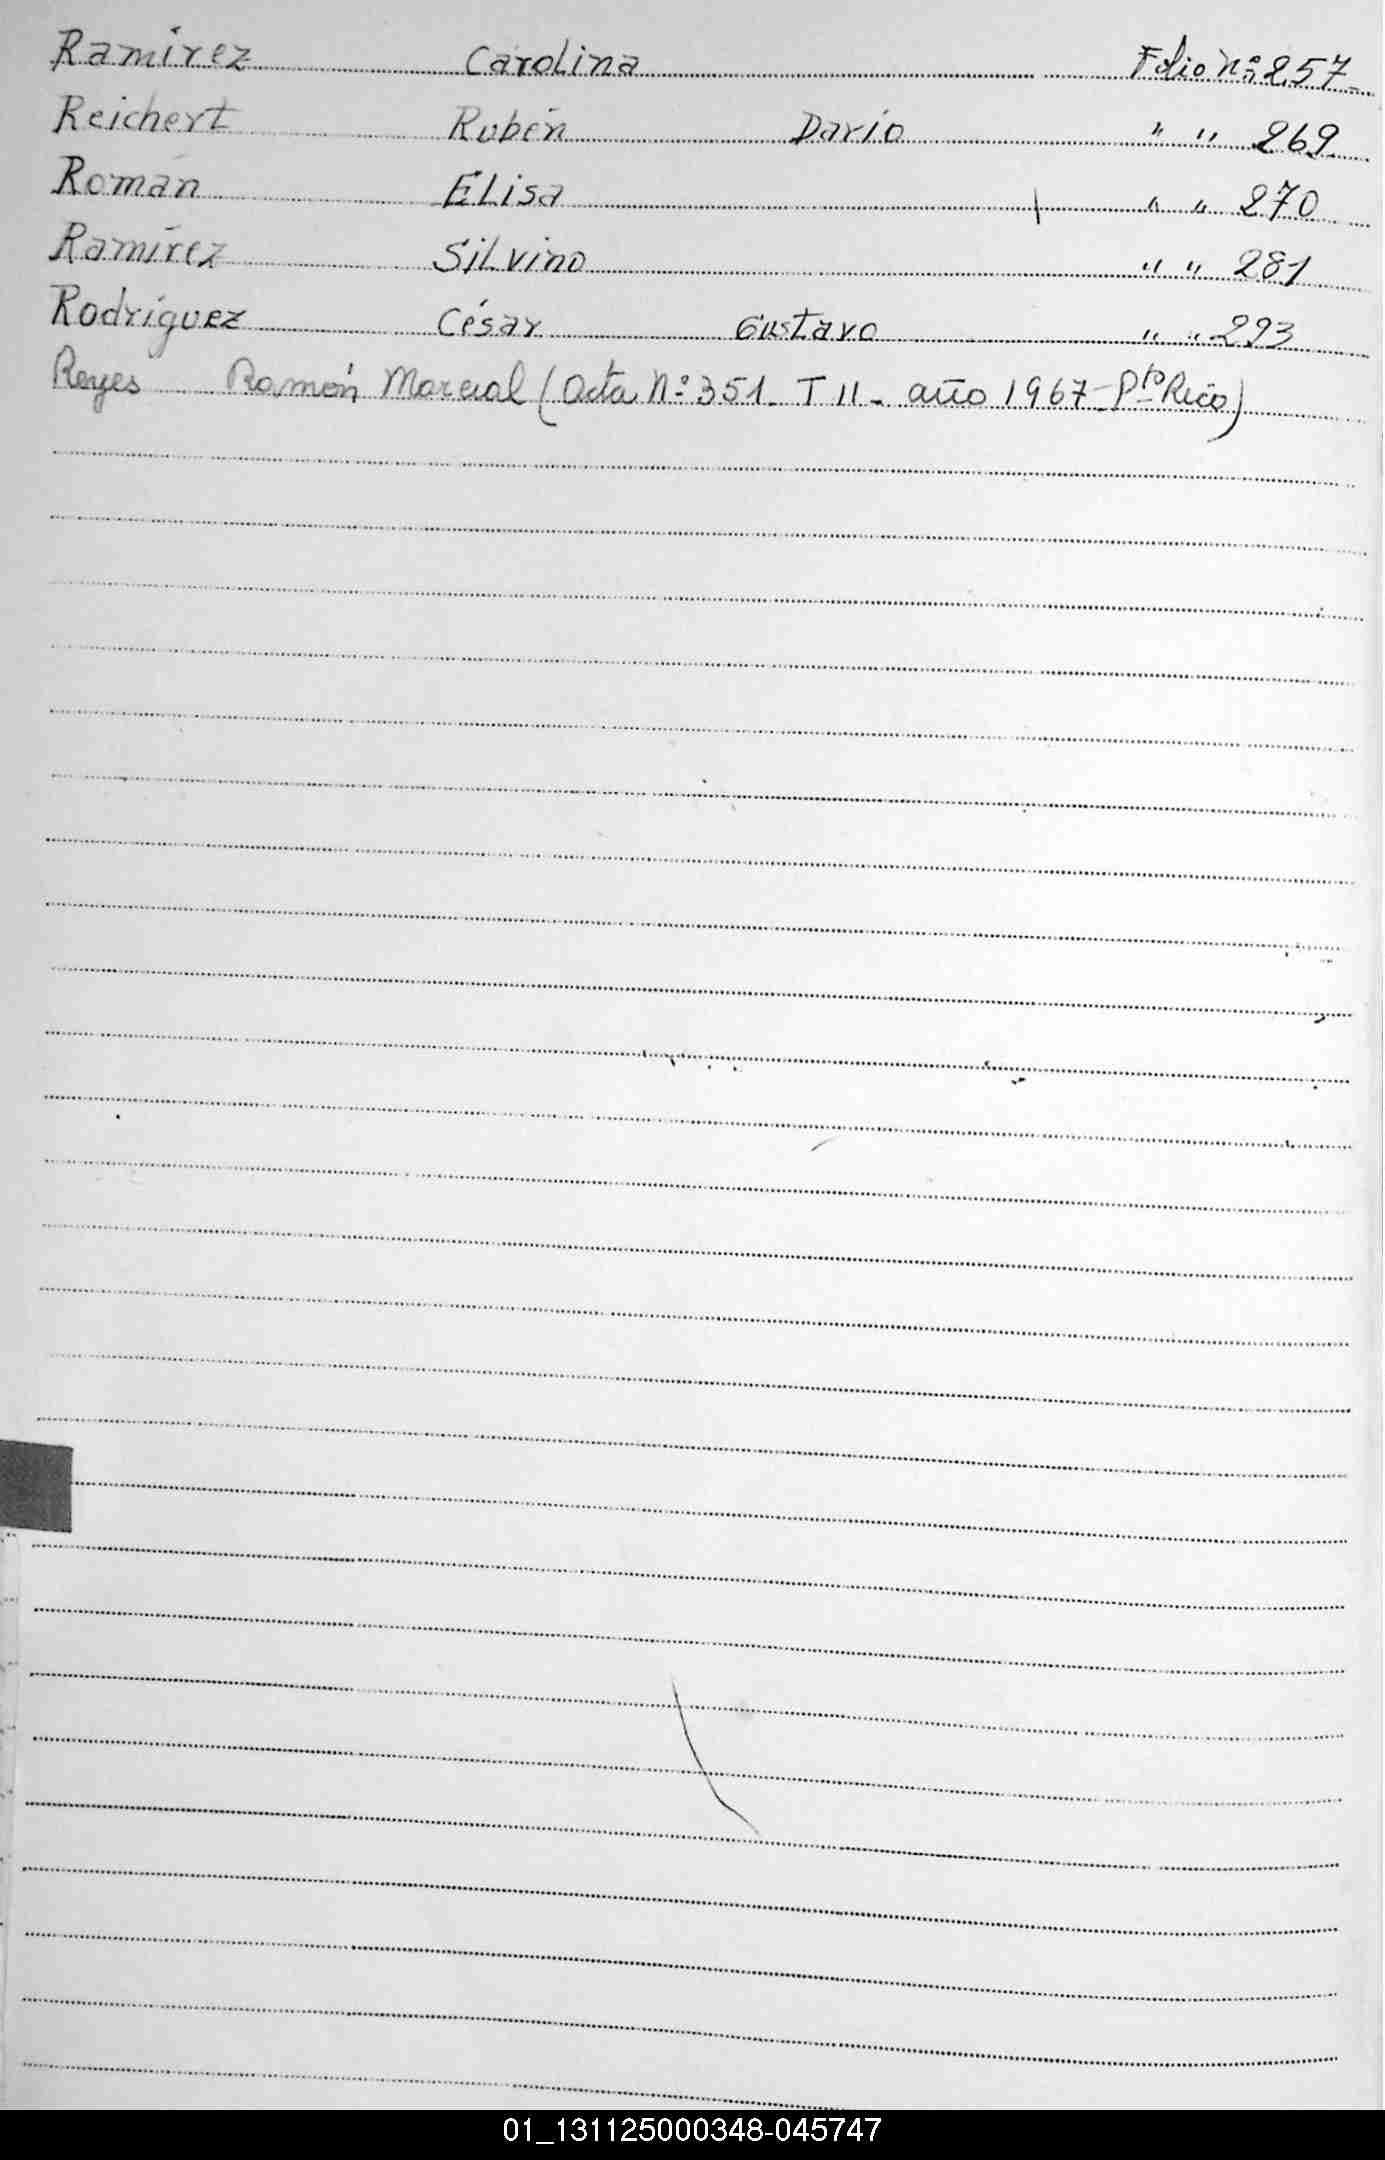 Ramírez Carolina Folio Nº 257
Reichert Rubén Darío " " 269
Román Elisa " " 270
Ramírez Silvino " " 281
Rodríguez César Gustavo " " 293
Reyes Ramón Marcial (Acta Nº 351 - T II - año 1967 - Pto Rico)
01_131125000348-045747